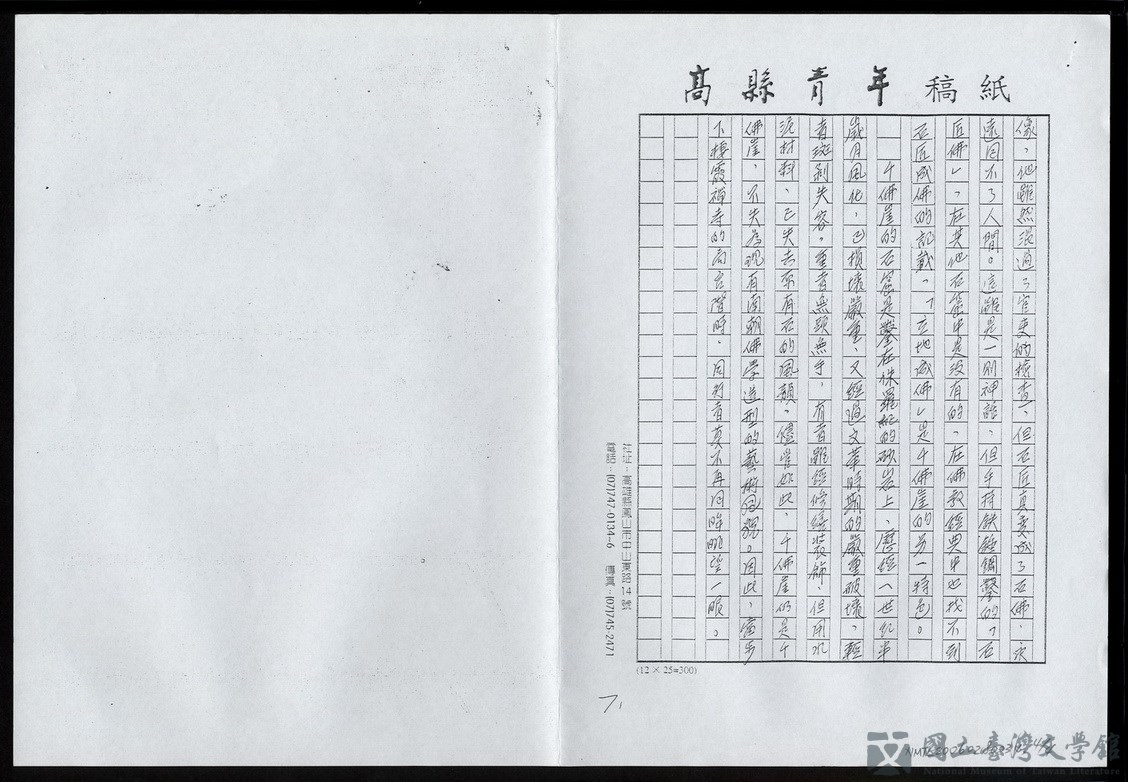 高縣青年稿紙
像，他雖然混過了官吏的檢查，但石匠真變成了石佛，永
遠回不了人間。這雖是一則神話，但手持鐵錘鋼鑿的「石
匠佛」，在其他石窟中是沒有的，在佛教經典中也找不到
石匠成佛的記載，「立地成佛」是千佛崖的另一特色。
千佛崖的石窟是鑿在侏羅紀的砂岩上，歷經一世紀半
歲月風化，已損壞嚴重，又經過文革時期的嚴重破壞，輕
者斑剝失容，重者無頭無手，有者雖經修繕裝飾，但用水
泥材料，已失去原有石的風韻，儘管如此，千佛崖仍是千
佛崖，不失為現有南朝佛學造型的藝術風貌。因此，當步
下棲霞禪寺的石台階時，同行者莫不再回眸眺望一眼。
社址：高雄縣鳳山市中山東路14號
電話：(07)747-0134-6 傳真：(07)745-2471
(12 × 25=300)
7,
國立臺灣文學館
National Museum of Taiwan Literature